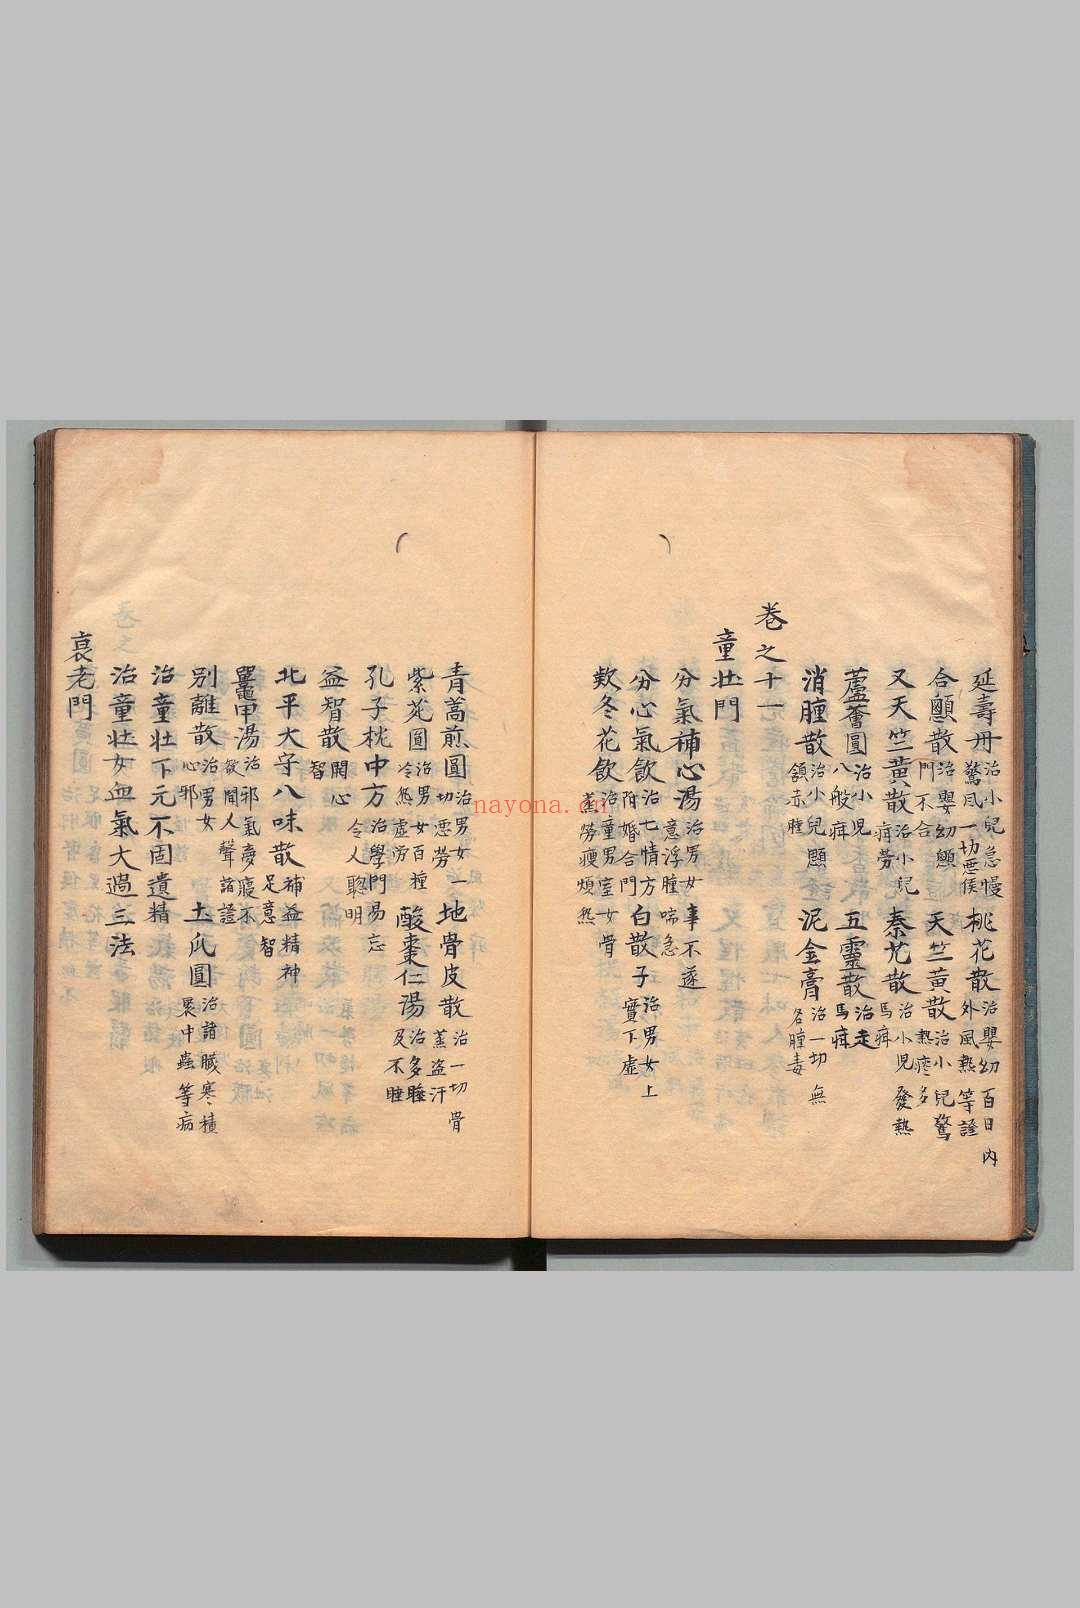 延壽丹治小兒急慢驚風一切惡候 桃花散治嬰幼百日內外風熱等證
合顱散治嬰幼顱門不合 天竺黃散治小兒驚熱瘮多
又天竺黃散治小兒疳勞 秦艽散治小兒發熱馬疳
蘆薈圓治小兒八般疳 五靈散治走馬疳
消腫散治小兒顋頷赤腫 泥金膏治一切無名腫毒
卷之十一
童壯門
分氣補心湯治男女事不遂意浮腫喘急
分心氣飲治七情方陌婚合門 白散子治男女上實下虛
欵冬花飲治童男室女骨蒸勞瘦煩熱
青蒿煎圓治男女一切惡勞 地骨皮散治一切骨蒸盜汗
紫菀圓治男女百種冷熱虛勞 酸棗仁湯治多睡及不睡
孔子枕中方治學門易忘令人聰明
益智散開心智
北平大守八味散補益精神足意智
鼉甲湯治邪氣夢寢不散聞人聲諸證
別離散治男女心邪 土瓜圓治諸臟寒積展中蟲等病
治童壯下元不固遺精
治童壯女血氣大過三法
衰老門
nayona.cn